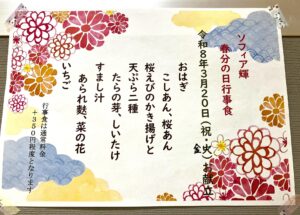 ソフィア輝
春分の日行事食
令和8年3月20日(祝・火)お献立
金
おはぎ
こしあん、桜あん
桜えびのかき揚げと
天ぷら二種
たらの芽、しいたけ
すまし汁
あられ麩、菜の花
いちご
行事食は通常料金
+350円程度となります